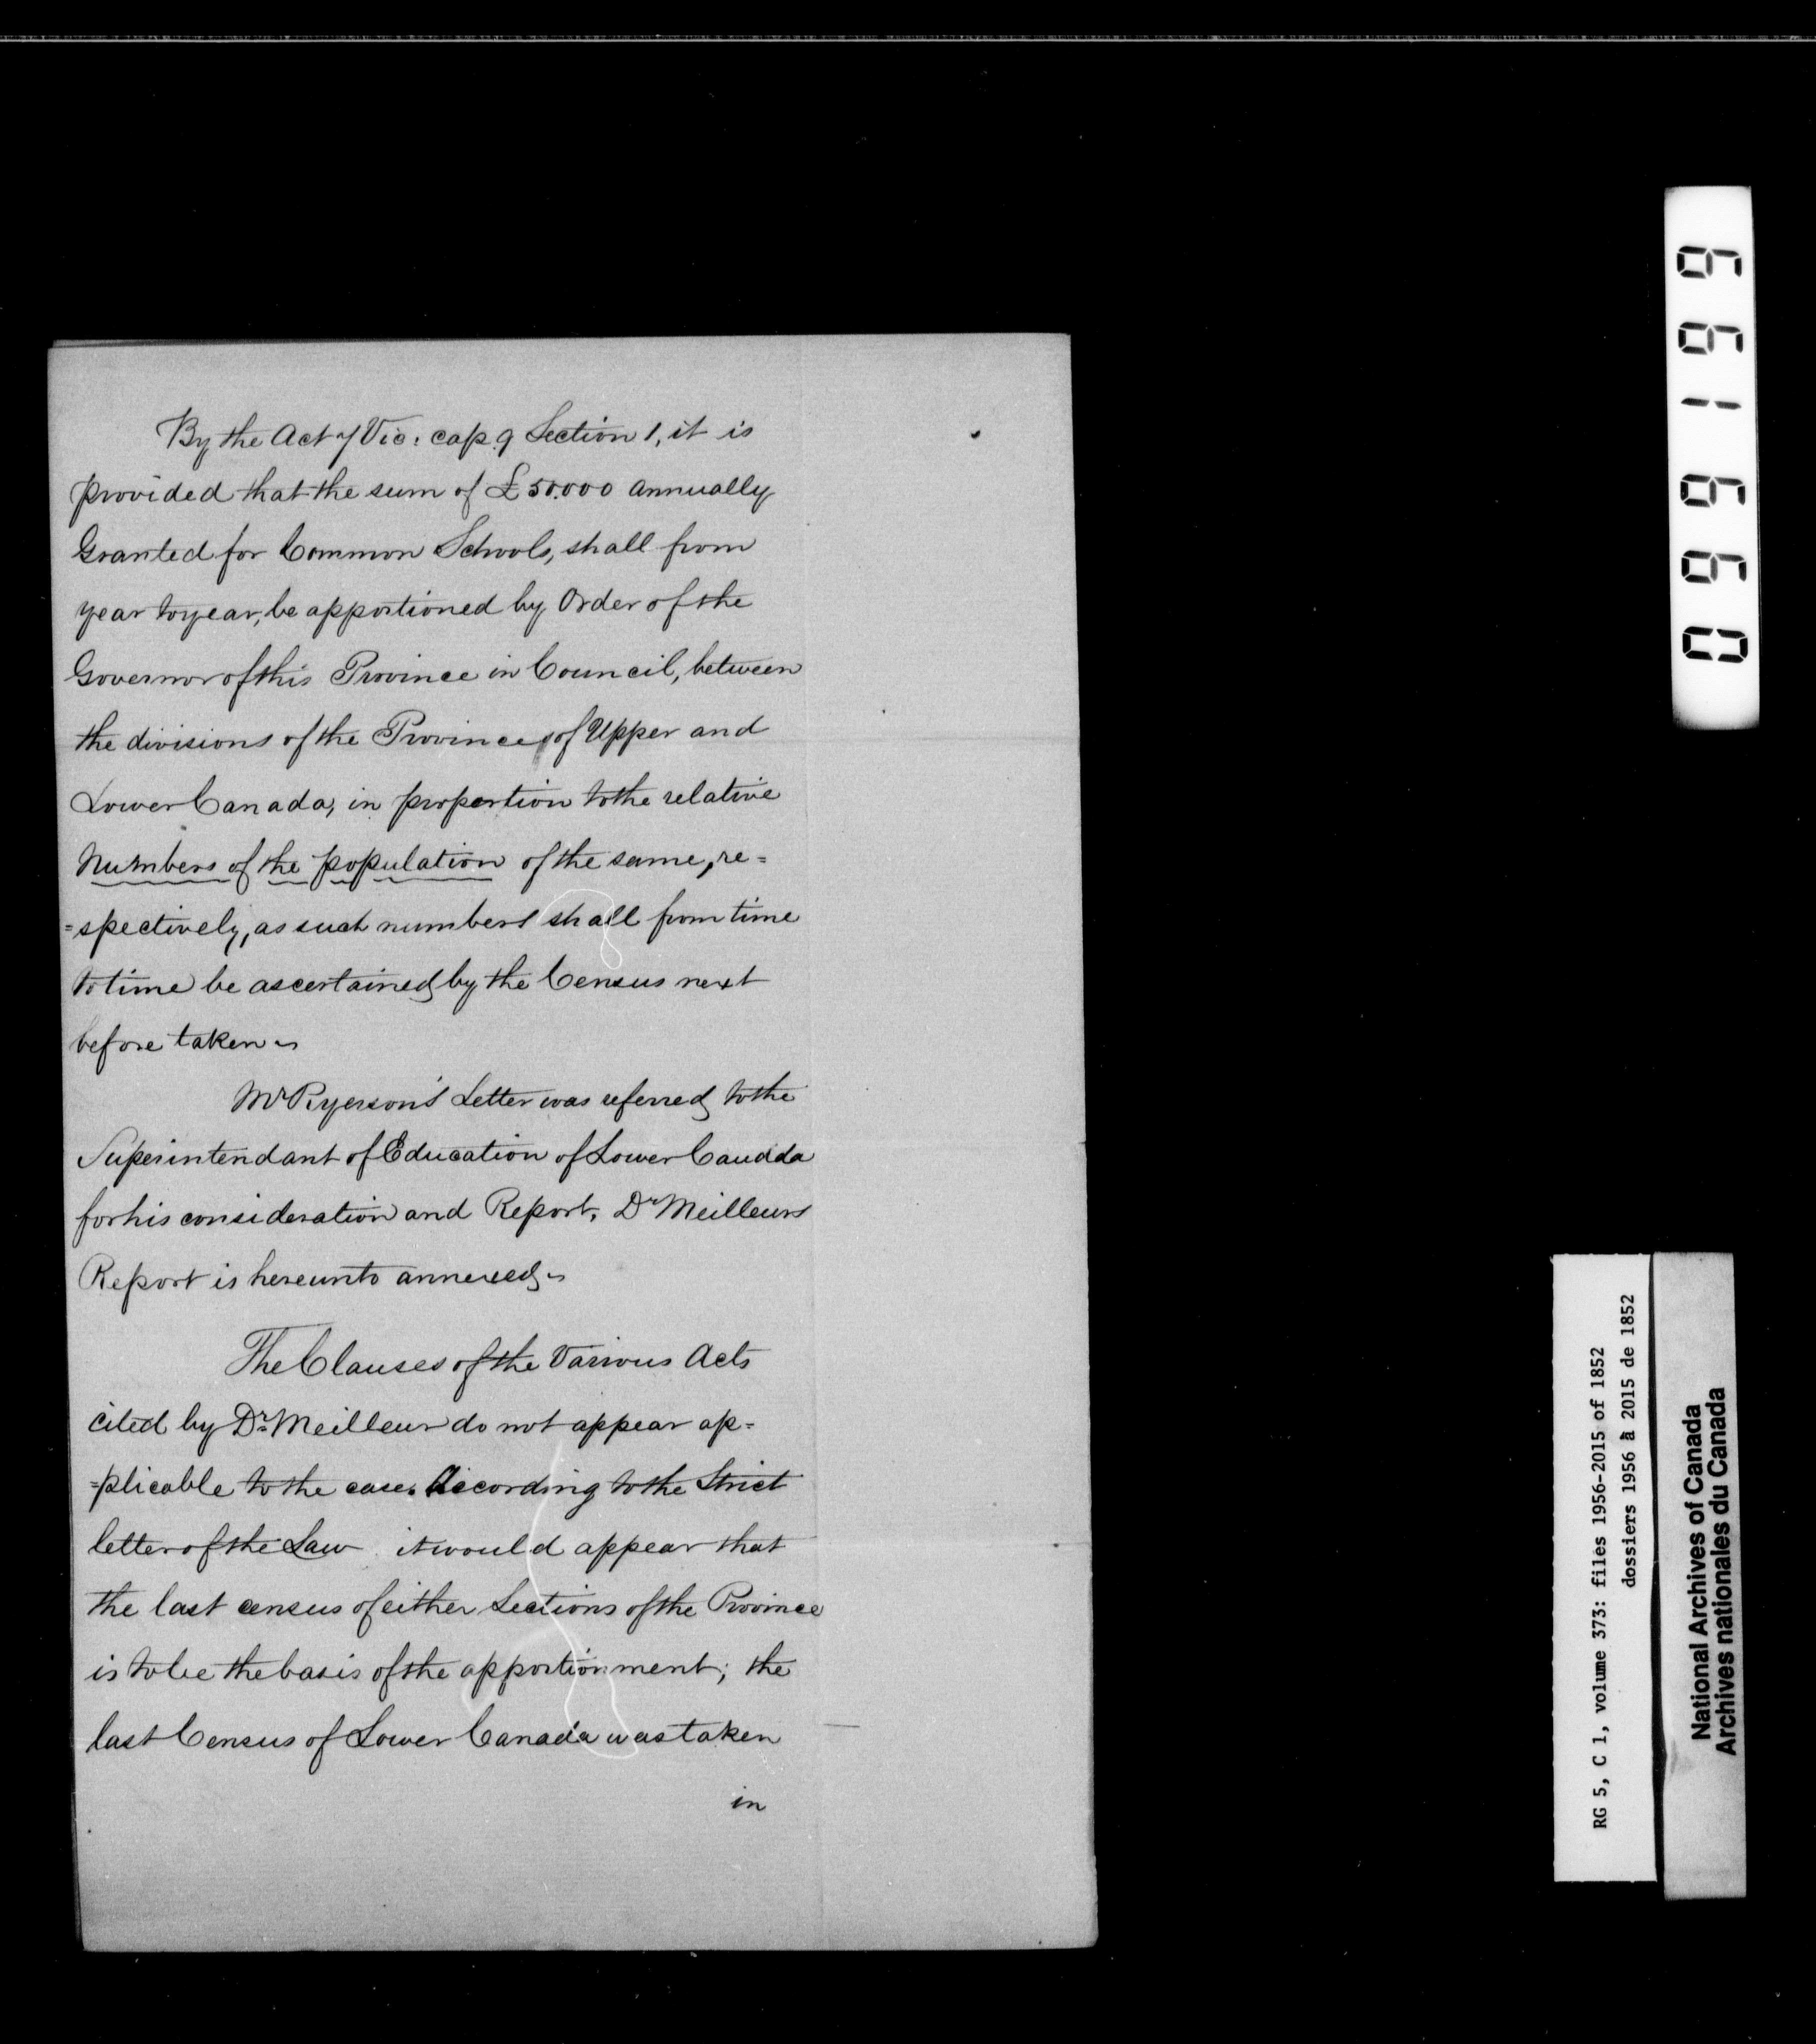 By the Act 7 Vic: cap. 9 Section 1, it is
provided that the sum of £50.000 annually
Granted for Common Schools, shall from
year to year, be apportioned by Order of the
Governor of this Province in Council, between
the divisions of the Province of Upper and
Lower Canada, in proportion to the relative
Numbers of the population of the same, re=
=spectively, as such numbers shall from time
to time be ascertained by the Census next
before taken ~
Mr Ryerson's Letter was referred to the
Superintendant of Education of Lower Canada
for his consideration and Report, Dr Meilleurs
Report is hereunto annexed ~
The Clauses of the Various Acts
cited by Dr Meilleur do not appear ap=
=plicable to the case. According to the Strict
letter of the Law it would appear that
the last census of either Sections of the Province
is to be the basis of the apportionment; the
last Census of Lower Canada was taken
in
0 6 6 1 6 6
RG 5, C 1, volume 373: files 1956-2015 of 1852
dossiers 1956 à 2015 de 1852
National Archives of Canada
Archives nationales du Canada